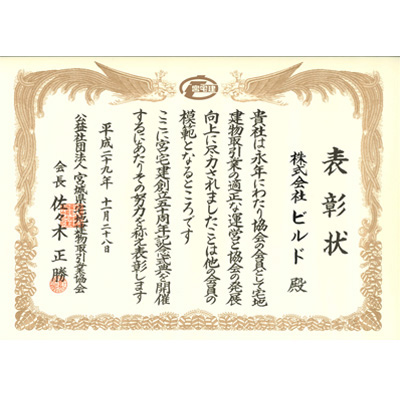 表彰状
株式会社 ビルド 殿
貴社は永年にわたり協会の会員として宅地
建物取引業の適正な運営と協会の発展
向上に尽力されましたことは他の会員の
模範となるところです
ここに宮宅建創立五十周年記念式典を開催
するにあたりその努力を称え表彰します
平成二十九年 十一月二十八日
公益社団法人 宮城県宅地建物取引業協会
会長 佐々木 正勝